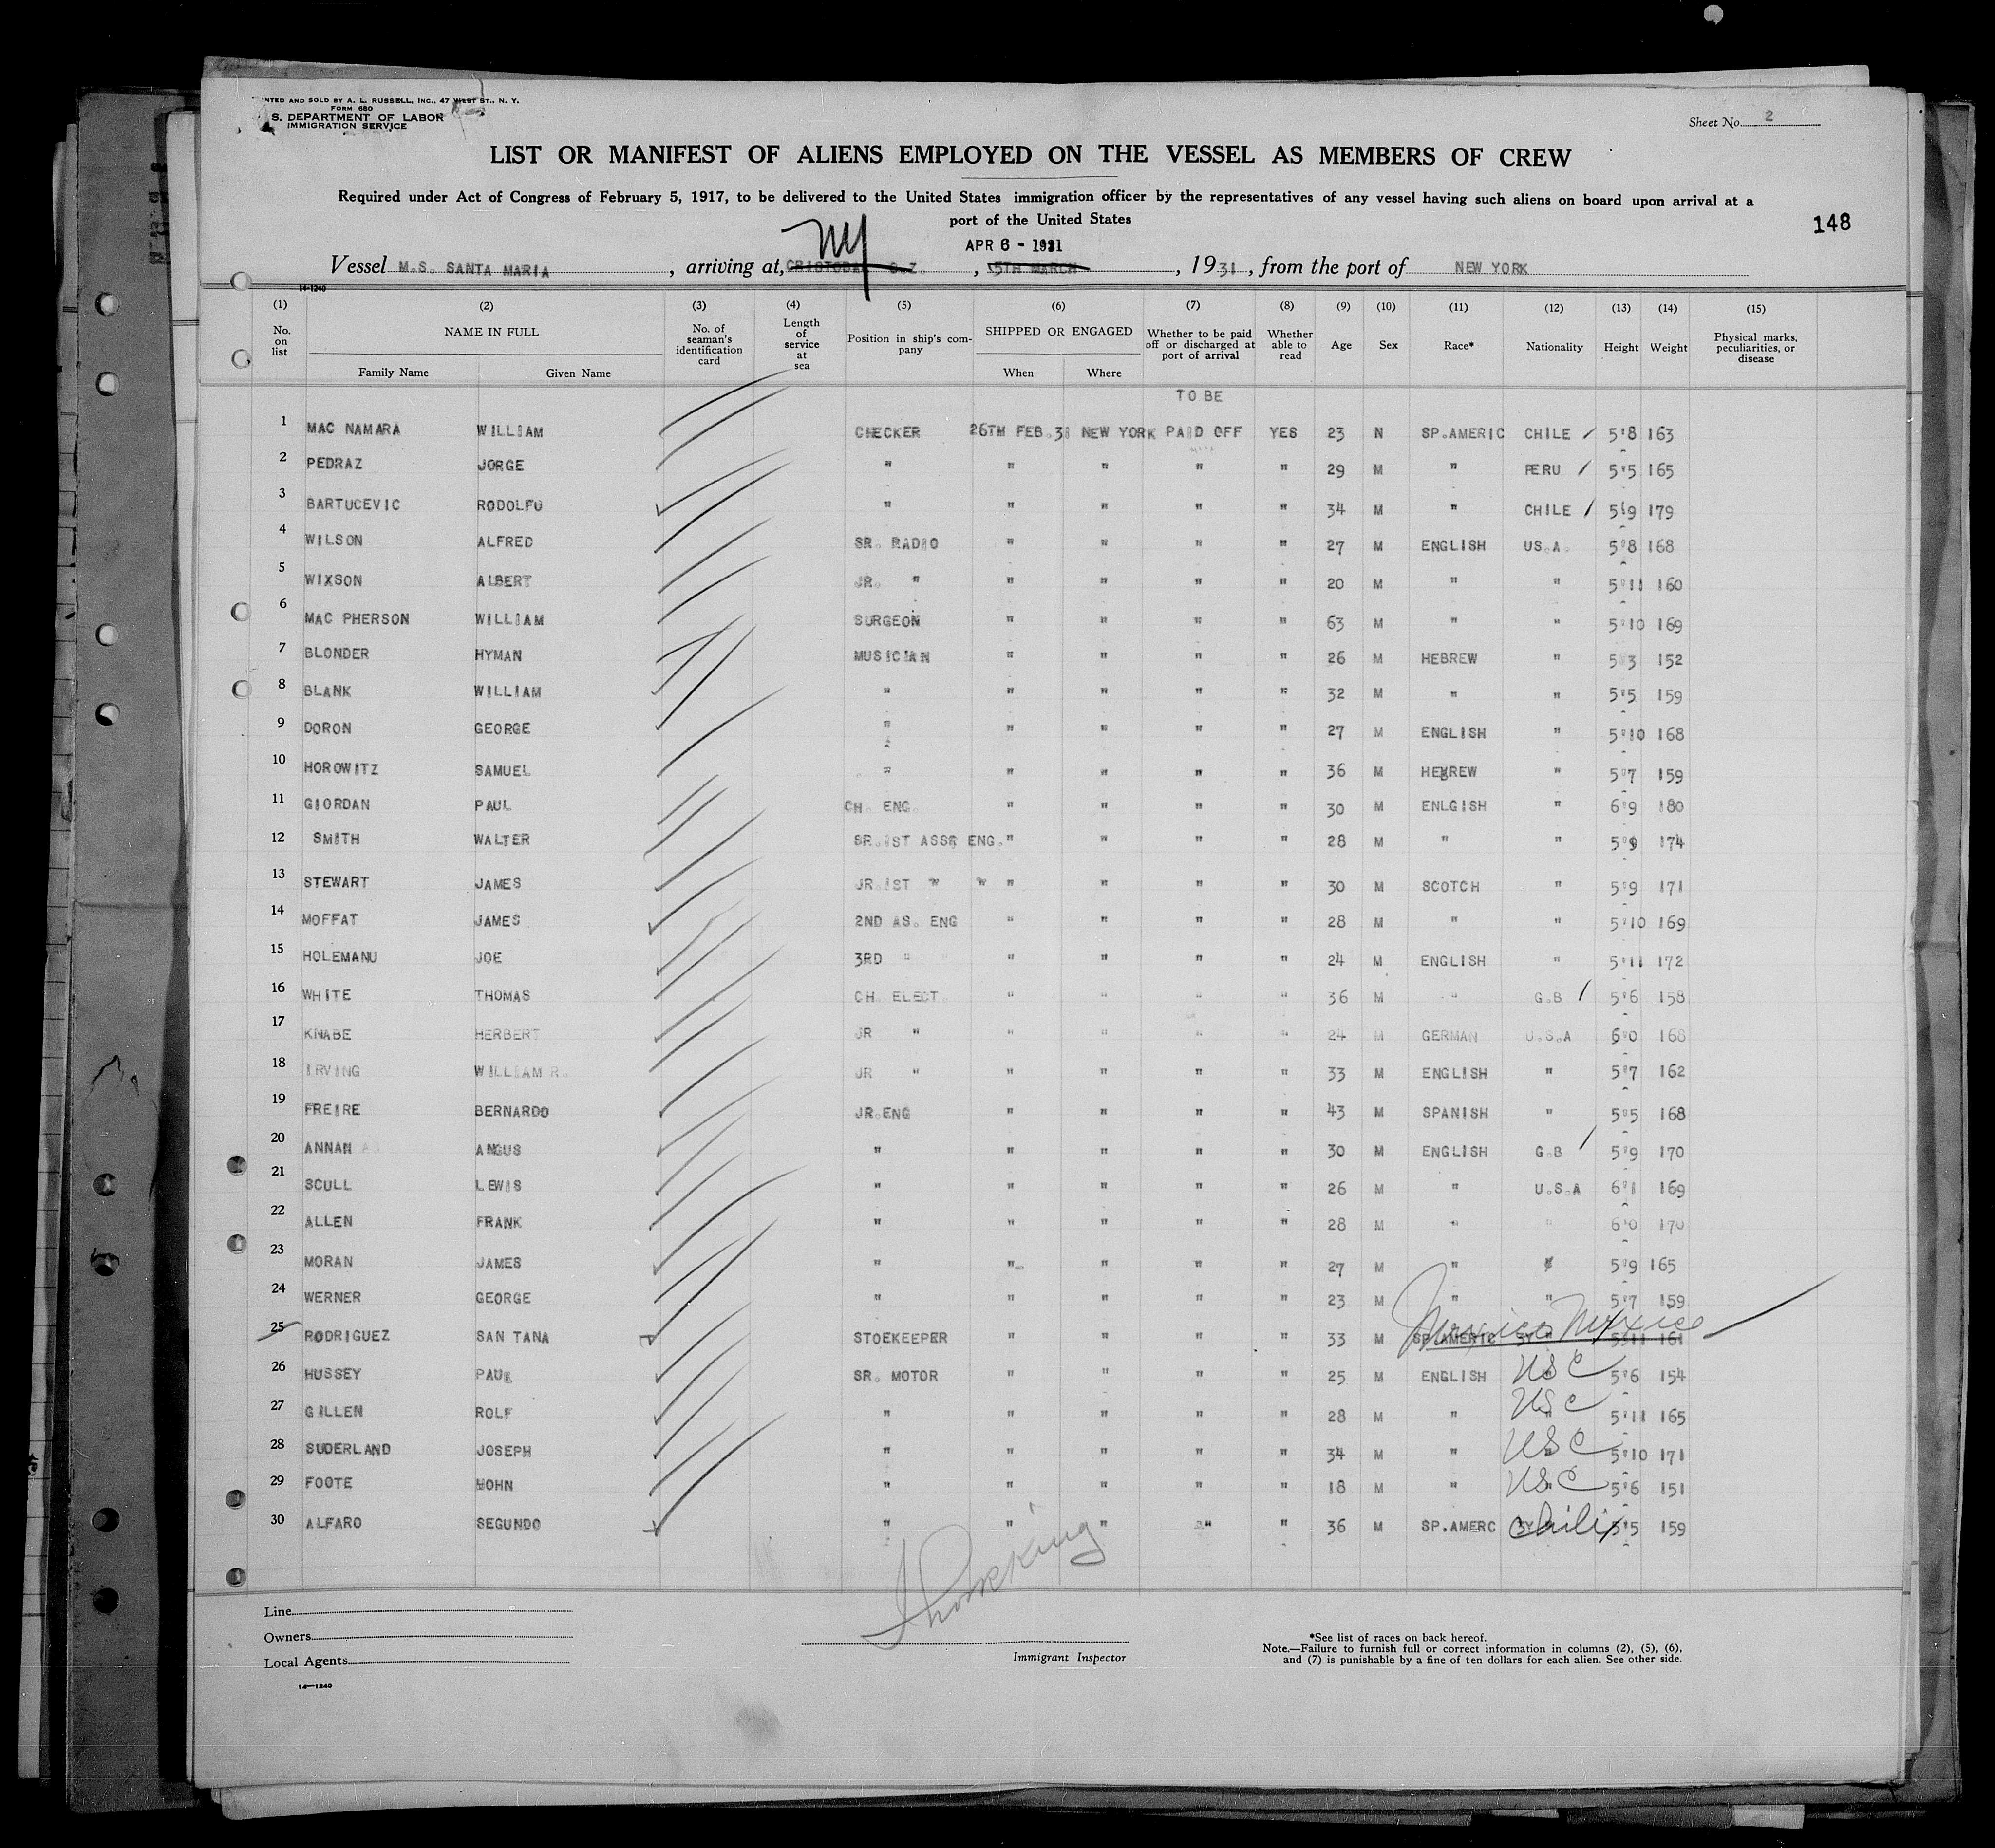 NTED AND SOLD BY A. L. RUSSELL, INC., 47 WEST ST., N. Y.
FORM 680
S. DEPARTMENT OF LABOR
IMMIGRATION SERVICE
Sheet No. 2
LIST OR MANIFEST OF ALIENS EMPLOYED ON THE VESSEL AS MEMBERS OF CREW
Required under Act of Congress of February 5, 1917, to be delivered to the United States immigration officer by the representatives of any vessel having such aliens on board upon arrival at a
port of the United States
148
NY APR 6 - 1931
Vessel M.S. SANTA MARIA, arriving at, CRISTOBAL C.Z., 5TH MARCH, 1931, from the port of NEW YORK
14-1240
(1) (2) (3) (4) (5) (6) (7) (8) (9) (10) (11) (12) (13) (14) (15)
No. on list NAME IN FULL No. of seaman's identification card Length of service at sea Position in ship's company SHIPPED OR ENGAGED Whether to be paid off or discharged at port of arrival Whether able to read Age Sex Race* Nationality Height Weight Physical marks, peculiarities, or disease
Family Name Given Name When Where
TO BE
1 MAC NAMARA WILLIAM CHECKER 26TH FEB.31 NEW YORK PAID OFF YES 23 N SP.AMERIC CHILE 5'8 163
2 PEDRAZ JORGE " " " " " 29 M " PERU 5'5 165
3 BARTUCEVIC RODOLFO " " " " " 34 M " CHILE 5'9 179
4 WILSON ALFRED SR. RADIO " " " " 27 M ENGLISH US.A. 5'8 168
5 WIXSON ALBERT JR. " " " " " 20 M " " 5'11 160
6 MAC PHERSON WILLIAM SURGEON " " " " 63 M " " 5'10 169
7 BLONDER HYMAN MUSICIAN " " " " 26 M HEBREW " 5'3 152
8 BLANK WILLIAM " " " " " 32 M " " 5'5 159
9 DORON GEORGE " " " " " 27 M ENGLISH " 5'10 168
10 HOROWITZ SAMUEL " " " " " 36 M HEBREW " 5'7 159
11 GIORDAN PAUL CH. ENG. " " " " 30 M ENLGISH " 6'9 180
12 SMITH WALTER SR.1ST ASSR ENG. " " " " 28 M " " 5'9 174
13 STEWART JAMES JR.1ST " " " " " " 30 M SCOTCH " 5'9 171
14 MOFFAT JAMES 2ND AS. ENG " " " " 28 M " " 5'10 169
15 HOLEMANU JOE 3RD " " " " " 24 M ENGLISH " 5'11 172
16 WHITE THOMAS CH. ELECT. " " " " 36 M " G.B 5'6 158
17 KNABE HERBERT JR " " " " " 24 M GERMAN U.S.A 6'0 168
18 IRVING WILLIAM R. JR " " " " " 33 M ENGLISH " 5'7 162
19 FREIRE BERNARDO JR.ENG " " " " 43 M SPANISH " 5'5 168
20 ANNAN ANGUS " " " " " 30 M ENGLISH G.B 5'9 170
21 SCULL LEWIS " " " " " 26 M " U.S.A 6'1 169
22 ALLEN FRANK " " " " " 28 M " " 6'0 170
23 MORAN JAMES " " " " " 27 M " " 5'9 165
24 WERNER GEORGE " " " " " 23 M " " 5'7 159
25 RODRIGUEZ SAN TANA STOEKEEPER " " " " 33 M SP.AMERIC Mexico Mexico 5'11 161
26 HUSSEY PAUL SR. MOTOR " " " " 25 M ENGLISH USC 5'6 154
27 GILLEN ROLF " " " " " 28 M " USC 5'11 165
28 SUDERLAND JOSEPH " " " " " 34 M " USC 5'10 171
29 FOOTE HOHN " " " " " 18 M " USC 5'6 151
30 ALFARO SEGUNDO " " " " " 36 M SP.AMERC Chili 5'5 159
Line
Owners
Local Agents
14—1240
Immigrant Inspector
*See list of races on back hereof.
Note.—Failure to furnish full or correct information in columns (2), (5), (6),
and (7) is punishable by a fine of ten dollars for each alien. See other side.